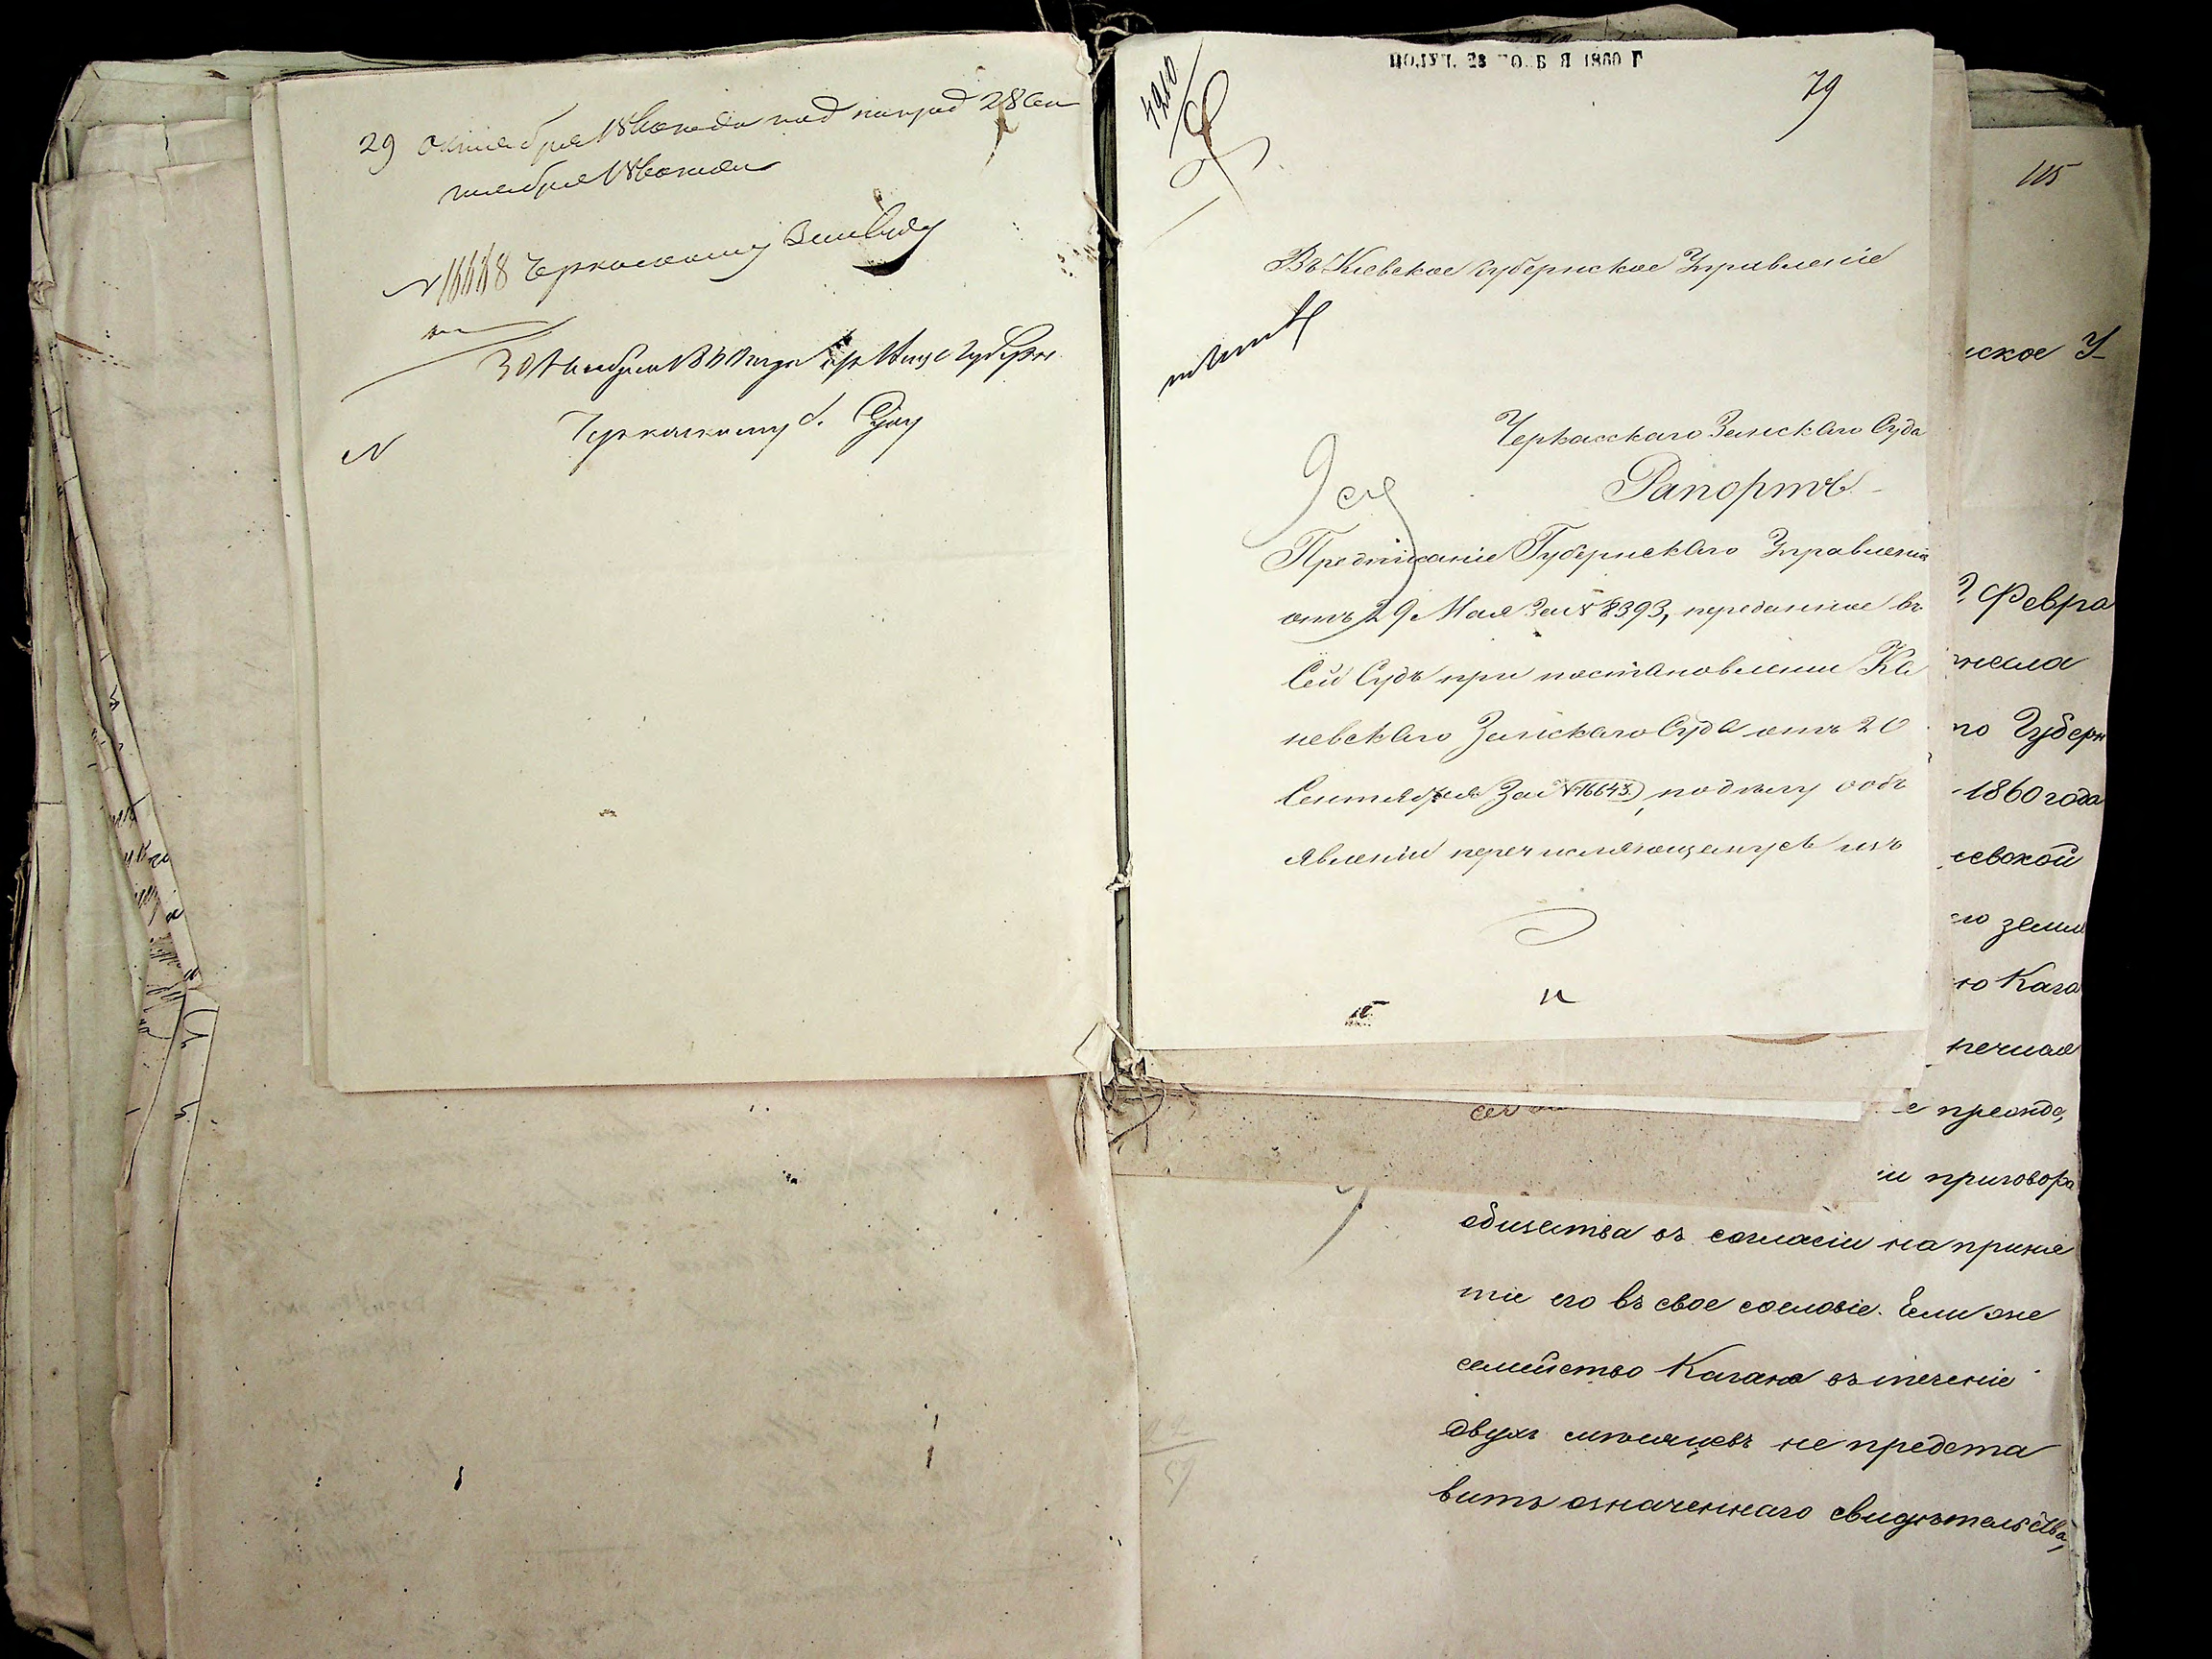 29 октября 1860 года под наряд 28 Сен
тября 1860 года
N 16668 Черкаскому Зем Суду
30 Ноября 1860 года
N Черкаскому З. Суду
4210
ПОЛУЧ. 23 НОЯБ Я 1860 Г
79
Въ Киевское Губернское Управленіе
Черкасскаго Земскаго Суда
Рапортъ
Предписаніе Губернскаго Управленія
отъ 29 Мая За N 8393, переданное въ
Сей Судъ при постановленіи Ка
невскаго Земскаго Суда отъ 20
Сентября За N 16643, по делу о объ
явленіи перечисляющемуся изъ
115
ское У
Февра
по Губерн
1860 года
евской
го земли
ю Кага
е предо,
и приговора
общества въ согласіи на приня
тіе его въ свое сословіе. Если же
семейство Кагана въ теченіе
двухъ мѣсяцевъ не предста
витъ означеннаго свидѣтельства,